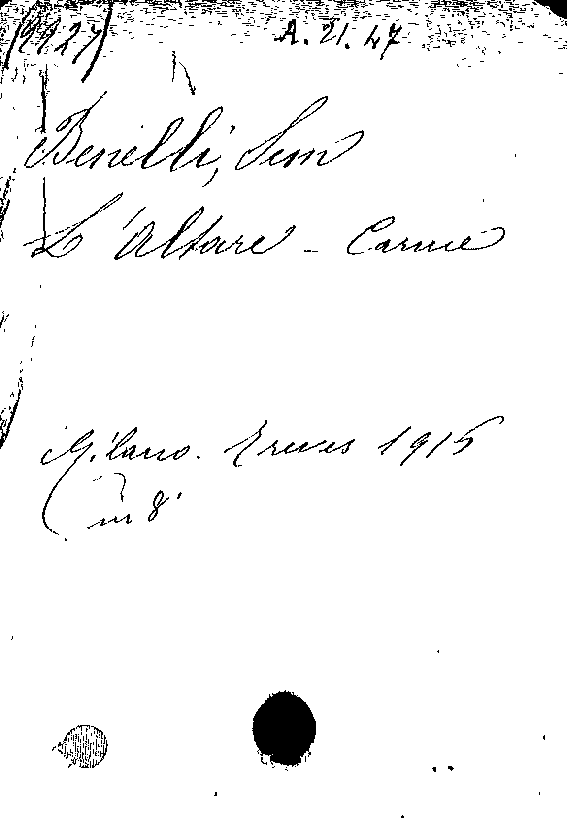 A. 21. 47
Benelli, Sem
L'Altare - Carme
Milano. Treves 1915
in 8°